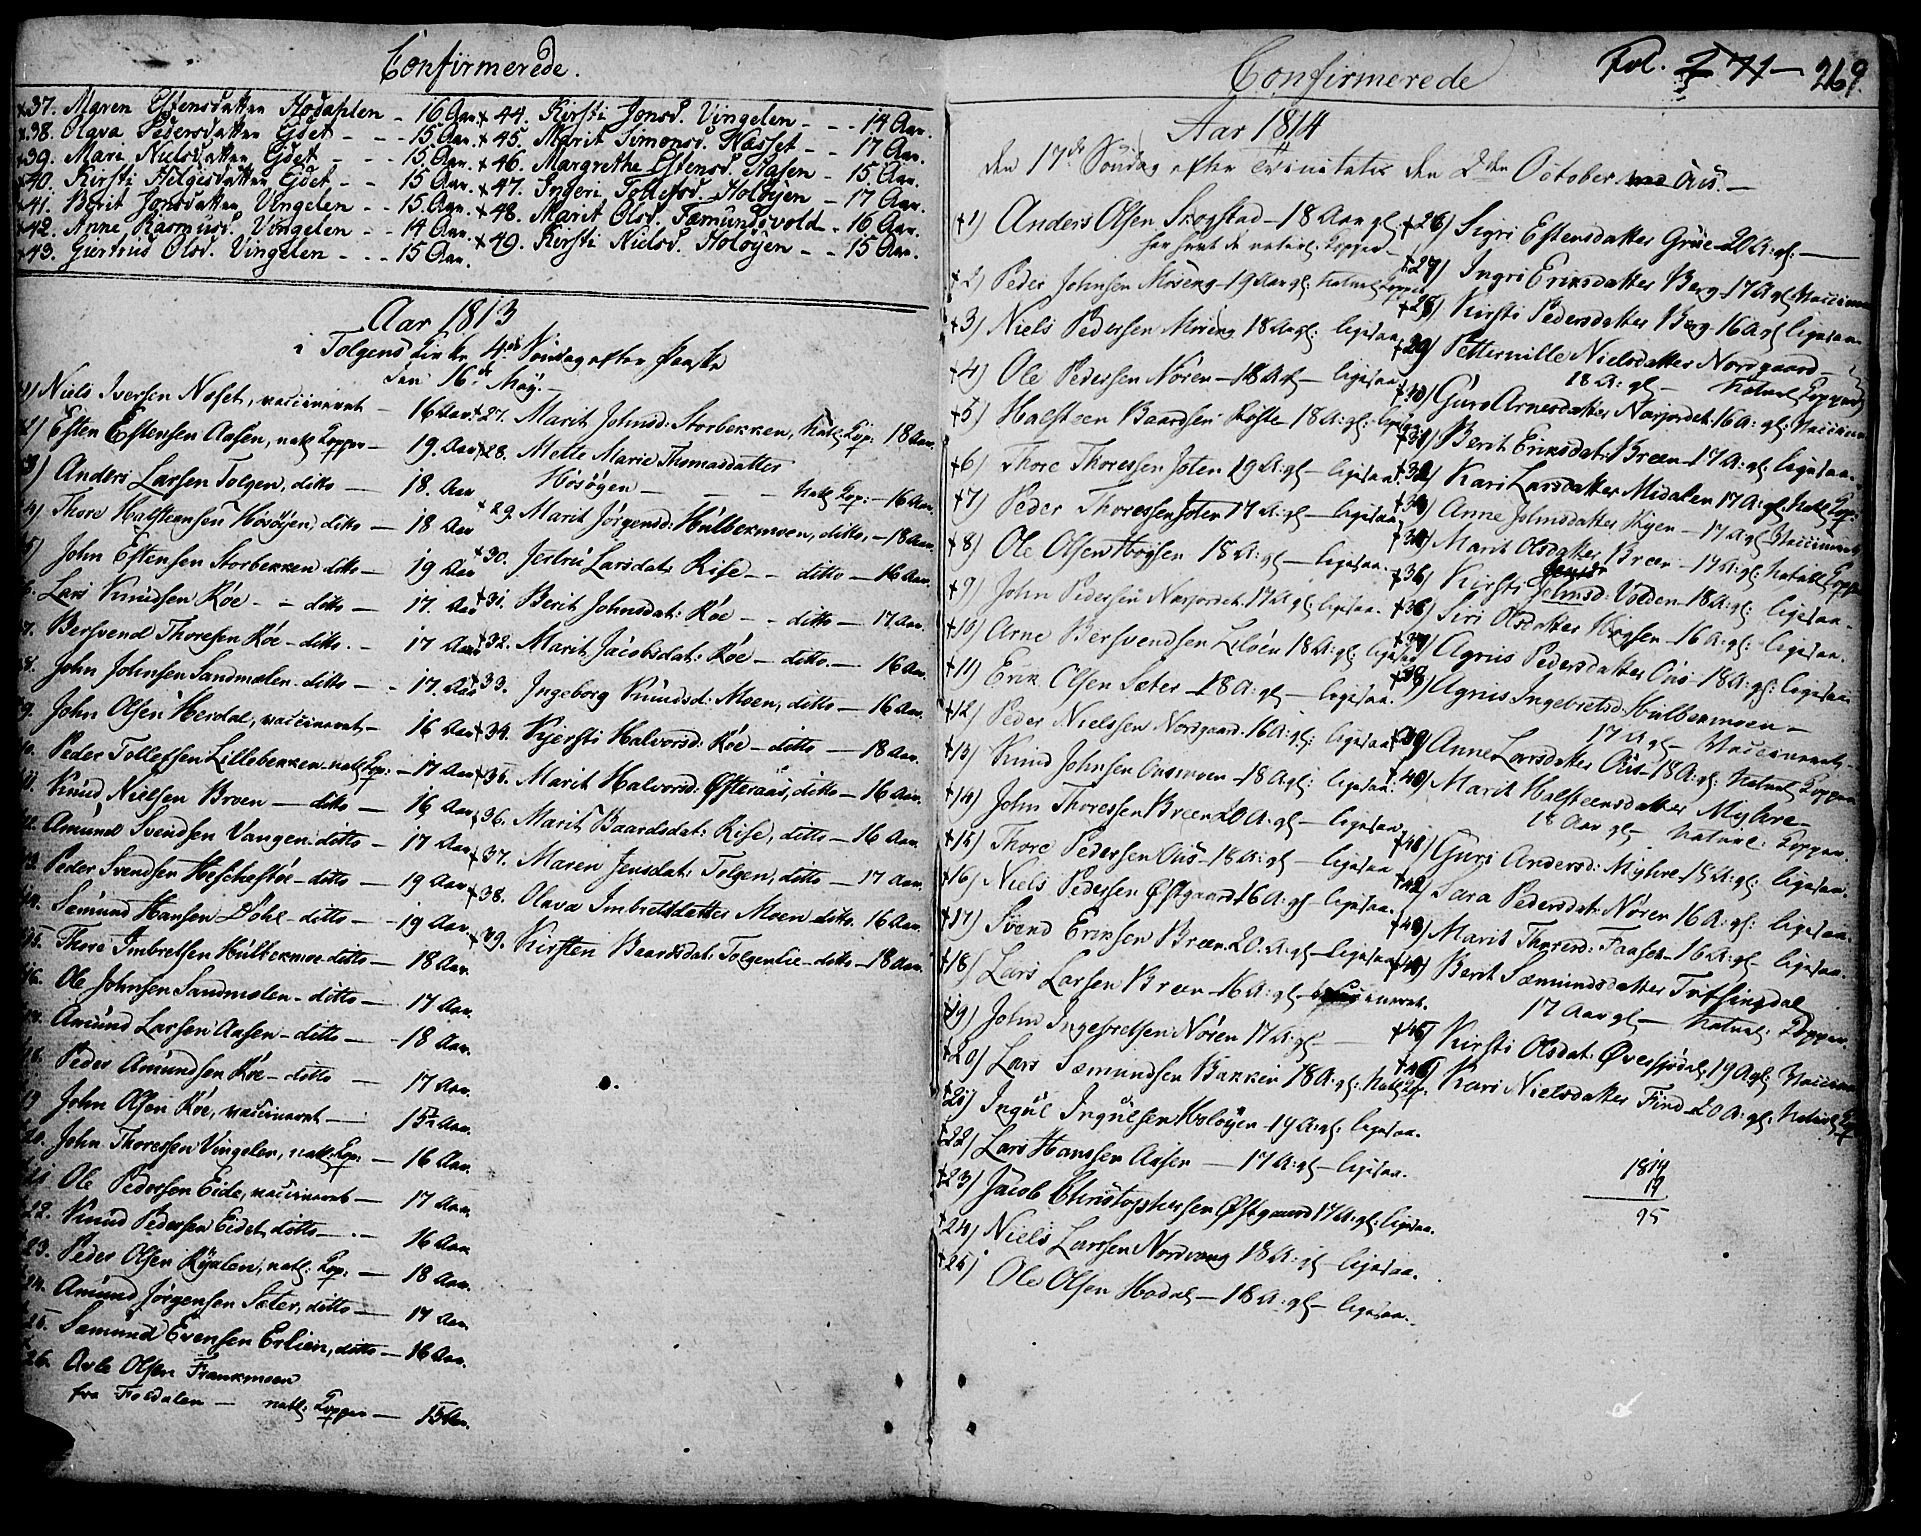 Confirmerede.
37. Maren Estensdatter Hodahlen - 16 Aar.
38. Olava Pedersdatter Ejdet - - - 15 Aar.
39. Mari Nielsdatter Ejdet - - - 15 Aar.
40. Kirsti Helgesdatter Ejdet - - 15 Aar.
41. Berit Jonsdatter Vingelen - - 15 Aar.
42. Anne Rasmusd. Vingelen - - 14 Aar.
43. Giertrud Olsd. Vingelen - - - 15 Aar.
44. Kirsti Jonsd. Vingelen - - - 14 Aar.
45. Marit Simonsd. Næsset - - 17 Aar.
46. Margrethe Estensd. Aasen - 15 Aar.
47. Ingeri Tollefsd. Holøyen - 17 Aar.
48. Marit Olsd. Fæmundsvold - 16 Aar.
49. Kirsti Nielsd. Holøyen - - 15 Aar.
Aar 1813
i Tolgens Kirke 4de Søndag efter Paaske
den 16de May.
1) Niels Iversen Noset, vaccineret - 16 Aar
2) Esten Estensen Aasen, natl. Kopper - 19 Aar
3) Anders Larsen Tolgen, ditto - 18. Aar
4) Thore Halsteensen Hosøyen, ditto - 18 Aar
5) John Estensen Storbekken ditto - 19 Aar
6. Lars Knudsen Røe - - ditto - 17. Aar
7. Bersvend Thoresen Røe - ditto. - 17 Aar
8. John Johnsen Sandmælen - ditto - - 17. Aar
9. John Olsen Herdal, vaccineret - 16 Aar
10. Peder Tollefsen Lillebekken - natl: Kop: - 17 Aar
11. Knud Nielsen Broen - ditto - 16 Aar
12. Amund Svendsen Vangen ditto - 17 Aar
13. Peder Svendsen - ditto - 19 Aar
14. Sæmund Hansen - ditto - 19 Aar
15. Thore Imbretsen Hulbekmoe ditto - 18 Aar.
16. Ole Johnsen Sandmælen - ditto - 17 Aar.
17. Amund Larsen Aasen - ditto - 18 Aar.
18. Peder Amundsen Røe - ditto - 17 Aar.
19 John Olsen Røe, vaccineret - 15½ Aar.
20. John Thoresen Vingelen, natl: Kop: - 16 Aar.
21 Ole Pedersen Eide, vaccineret - 17 Aar.
22. Knud Pedersen Eidet, ditto - . - 16 Aar
23. Peder Olsen, natl: Kop: - 18 Aar.
24. Amund Jørgensen Sæter, ditto - 17 Aar.
25. Sæmund Evensen Erlien, ditto - 16 Aar.
26. Arle Olsen
fra Foldalen - natl: Kopper - 15 Aar.
27. Marit Johnsd: Storbekken, Natl: Kop: 18 Aar.
28. Mette Marie Thomasdatter
Hosøyen - - - Natl. Kop: - 16 Aar.
29. Marit Jørgensd: Hulbekmoen, ditto, - 18 Aar.
30. Larsdat: Rise - - ditto - 16 Aar.
31. Berit Johnsdat: Røe - - ditto - 17 Aar.
32. Marit Jacobsdat: Røe - ditto. - 16 Aar.
33. Ingeborg Knudsd: Moen, ditto - 16 Aar.
34. Kjersti Halvorsd: Røe - ditto - 18 Aar.
35. Marit Halvorsd: Østeraas, ditto - 16 Aar.
36. Marit Baardsdat: Rise, ditto - 16 Aar.
37. Maren Jensdat: Tolgen, ditto - 17 Aar.
38. Olava Imbretsdatter Moen ditto. 16 Aar.
39. Kirsten Baardsdat: Tolgenlie - ditto - 18 Aar.
Confirmerede
Fol. 271 - 269.
Aar 1814
den 17de Søndag efter Trinitatis den 2den October Aus. -
1) Anders Olsen Skogstad - 18 Aar gl.
har havt de naturl. Kopper -
2) Peder Johnsen Moseng - 19 Aar gl: Naturl Kopper
3) Niels Pedersen Moseng 18 Aar gl: ligesaa
4) Ole Pedersen Noren - 18 A: gl - ligesaa
5) Halsteen Baardsen Røste 18 A: gl: ligesaa
6) Thore Thoresen Joten 19 A: gl - ligesaa.
7) Peder Thoresen Joten 17 A: gl - ligesaa
8) Ole Olsen 18 A: gl - ligesaa.
9) John Pedersen Narjordet 17 A: gl: ligesaa.
10) Arne Bersvendsen Liløen 18 A: gl: ligesaa
11) Erik Olsen Sæter 18 A: gl - ligesaa.
12) Peder Nielsen Nordgaard 16 A: gl: ligesaa
13) Knud Johnsen Ausmoen - 18 A gl: ligesaa.
14) John Thoresen Breen 20 A: gl - ligesaa
15) Thore Pedersen Aus - 18 A: gl - ligesaa.
16) Niels Pedersen Østgaard 16 A: gl - ligesaa.
17) Svend Eriksen Breen 20 A: gl - ligesaa
18) Lars Larsen Breen - 16 A: gl -
19) John Ingebretsen Noren 17 A: gl -
20) Lars Sæmundsen Bakken 18 A: gl: Natl Kop:
21) Ingul Ingulsen Holøyen - 19 A: gl: ligesaa.
22) Lars Hansen Aasen - 17 A: gl - ligesaa.
23) Jacob Christophersen Østgaard 17 A: gl: ligesaa.
24) Niels Larsen Nordvang 18 A: gl - ligesaa.
25) Ole Olsen Hodal - 18 A: gl - ligesaa.
26) Sigri Estensdatter Grue 20 A: gl: -
27) Ingri Eriksdatter Berg - 17 A gl: Vaccineret
28) Kirsti Pedersdatter Berg 16 A gl ligesaa.
29) Petternille Nielsdatter Nordgaard -
18 A: gl - Naturl Kopper
30) Guro Arnesdatter Narjordet 16 A: gl: Vaccineret
31) Berit Eriksdat: Breen 17 A: gl: ligesaa.
32) Kari Larsdatter Midalen 17 A: gl: Natl Kop:
Anne Johnsdatter - 17 A gl Vaccineret
Marit Olsdatter Breen - 17 A: gl: Naturl Kopper
Kirsti Johnsd: Volden 18 A: gl: ligesaa.
Siri Olsdatter - 16 A: gl: ligesaa.
Agnis Pedersdatter Aus 18 A: gl: ligesaa
Agnis Ingebretsd: Hulbekmoen -
17 A gl - Vaccineret -
39) Anne Larsdatter Aus - 18 A: gl: Naturl Kopper
40) Marit Halsteensdatter Myhre -
18 Aar gl - Naturl: Kopper.
41) Guri Andersd: Myhre 18 A: gl: ligesaa.
42. Sara Pedersdat: Noren 16 A: gl: ligesaa.
43) Marit Thoresd: Faaset - 16 A: gl - ligesaa.
44) Berit Sæmundsdatter Tufsingdal
17 Aar gl - Naturl: Kopper.
45) Kirsti Olsdat: Øversjødal, 19 A gl: Vaccineret
46) Kari Nielsdatter Find 20 A: gl: Naturl Kop
1814
19
95